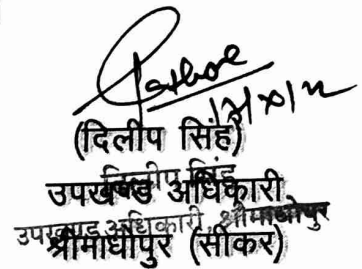 (दिलीप सिंह)
दिलीप सिंह
उपखण्ड अधिकारी
उपखण्ड अधिकारी श्रीमाधोपुर
श्रीमाधोपुर (सीकर)